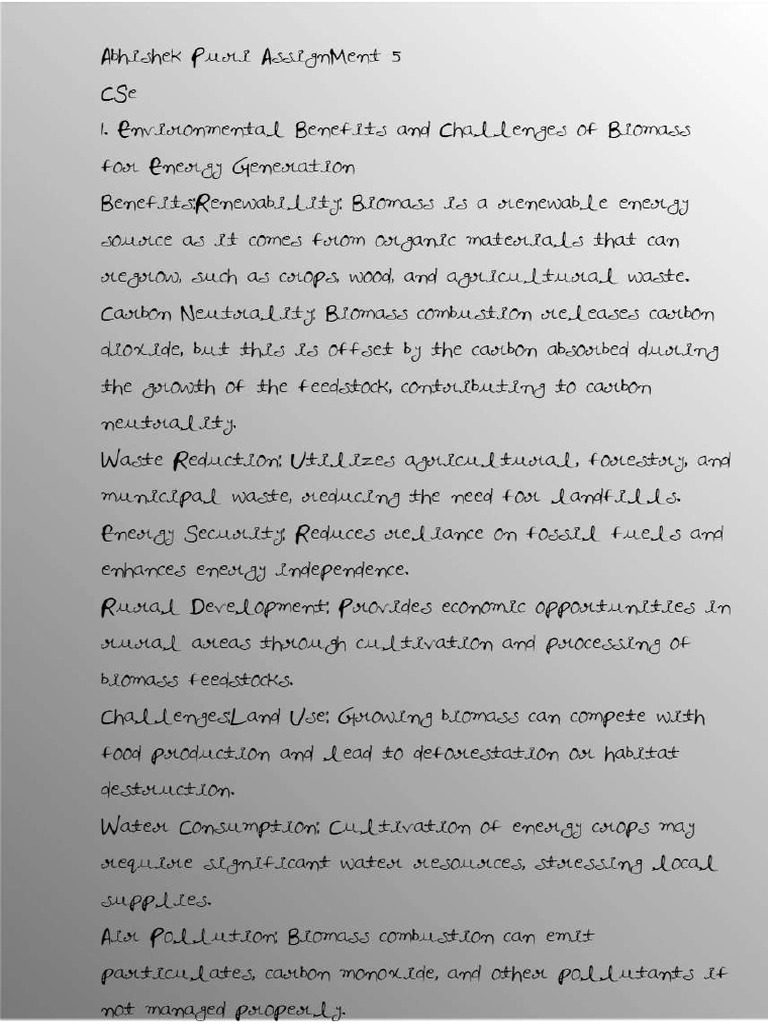 Abhishek Puri AssignMent 5
CSe
1. Environmental Benefits and Challenges of Biomass
for Energy Generation
Benefits:Renewability: Biomass is a renewable energy
source as it comes from organic materials that can
regrow, such as crops, wood, and agricultural waste.
Carbon Neutrality: Biomass combustion releases carbon
dioxide, but this is offset by the carbon absorbed during
the growth of the feedstock, contributing to carbon
neutrality.
Waste Reduction: Utilizes agricultural, forestry, and
municipal waste, reducing the need for landfills.
Energy Security: Reduces reliance on fossil fuels and
enhances energy independence.
Rural Development: Provides economic opportunities in
rural areas through cultivation and processing of
biomass feedstocks.
Challenges:Land Use: Growing biomass can compete with
food production and lead to deforestation or habitat
destruction.
Water Consumption: Cultivation of energy crops may
require significant water resources, stressing local
supplies.
Air Pollution: Biomass combustion can emit
particulates, carbon monoxide, and other pollutants if
not managed properly.